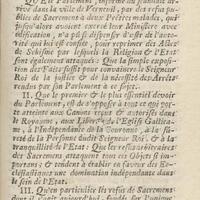 QU'Le Parlement, informé du scandale ar-
rivé dans la ville de Verneuil, par des refus pu-
blics de Sacremens à deux Prêtres malades, qui
jusqu'alors avoient exercé leur Ministere avec
édification, n'a pû se dispenser d'user de l'auto-
rité qui lui est confiée, pour reprimer des Actes
de Schisme par lesquels la Religion & l'Etat
sont également attaqués: Que la simple exposi-
tion des Faits suffit pour convaincre le Seigneur
Roi de la justice & de la nécessité des Arrêts
rendus par son Parlement à ce sujet.
II. Que le premier & le plus essentiel devoir
du Parlement, est de s'opposer à tout ce qui por-
te atteinte aux Canons reçus & autorisés dans
le Royaume, aux Libertés de l'Eglise Gallica-
ne, à l'Indépendance de la Couronne, à la sû-
reté de la Personne dudit Seigneur Roi, & à la
tranquillité de l'Etat: Que les refus arbitraires
des Sacremens attaquent tous ces Objets si im-
portans, & tendent à établir en faveur des Ec-
clésiastiques une domination indépendante dans
le sein de l'Etat.
III. Qu'en particulier les refus de Sacremens
dont il s'agit aujourd'hui, fondés sur l'inique